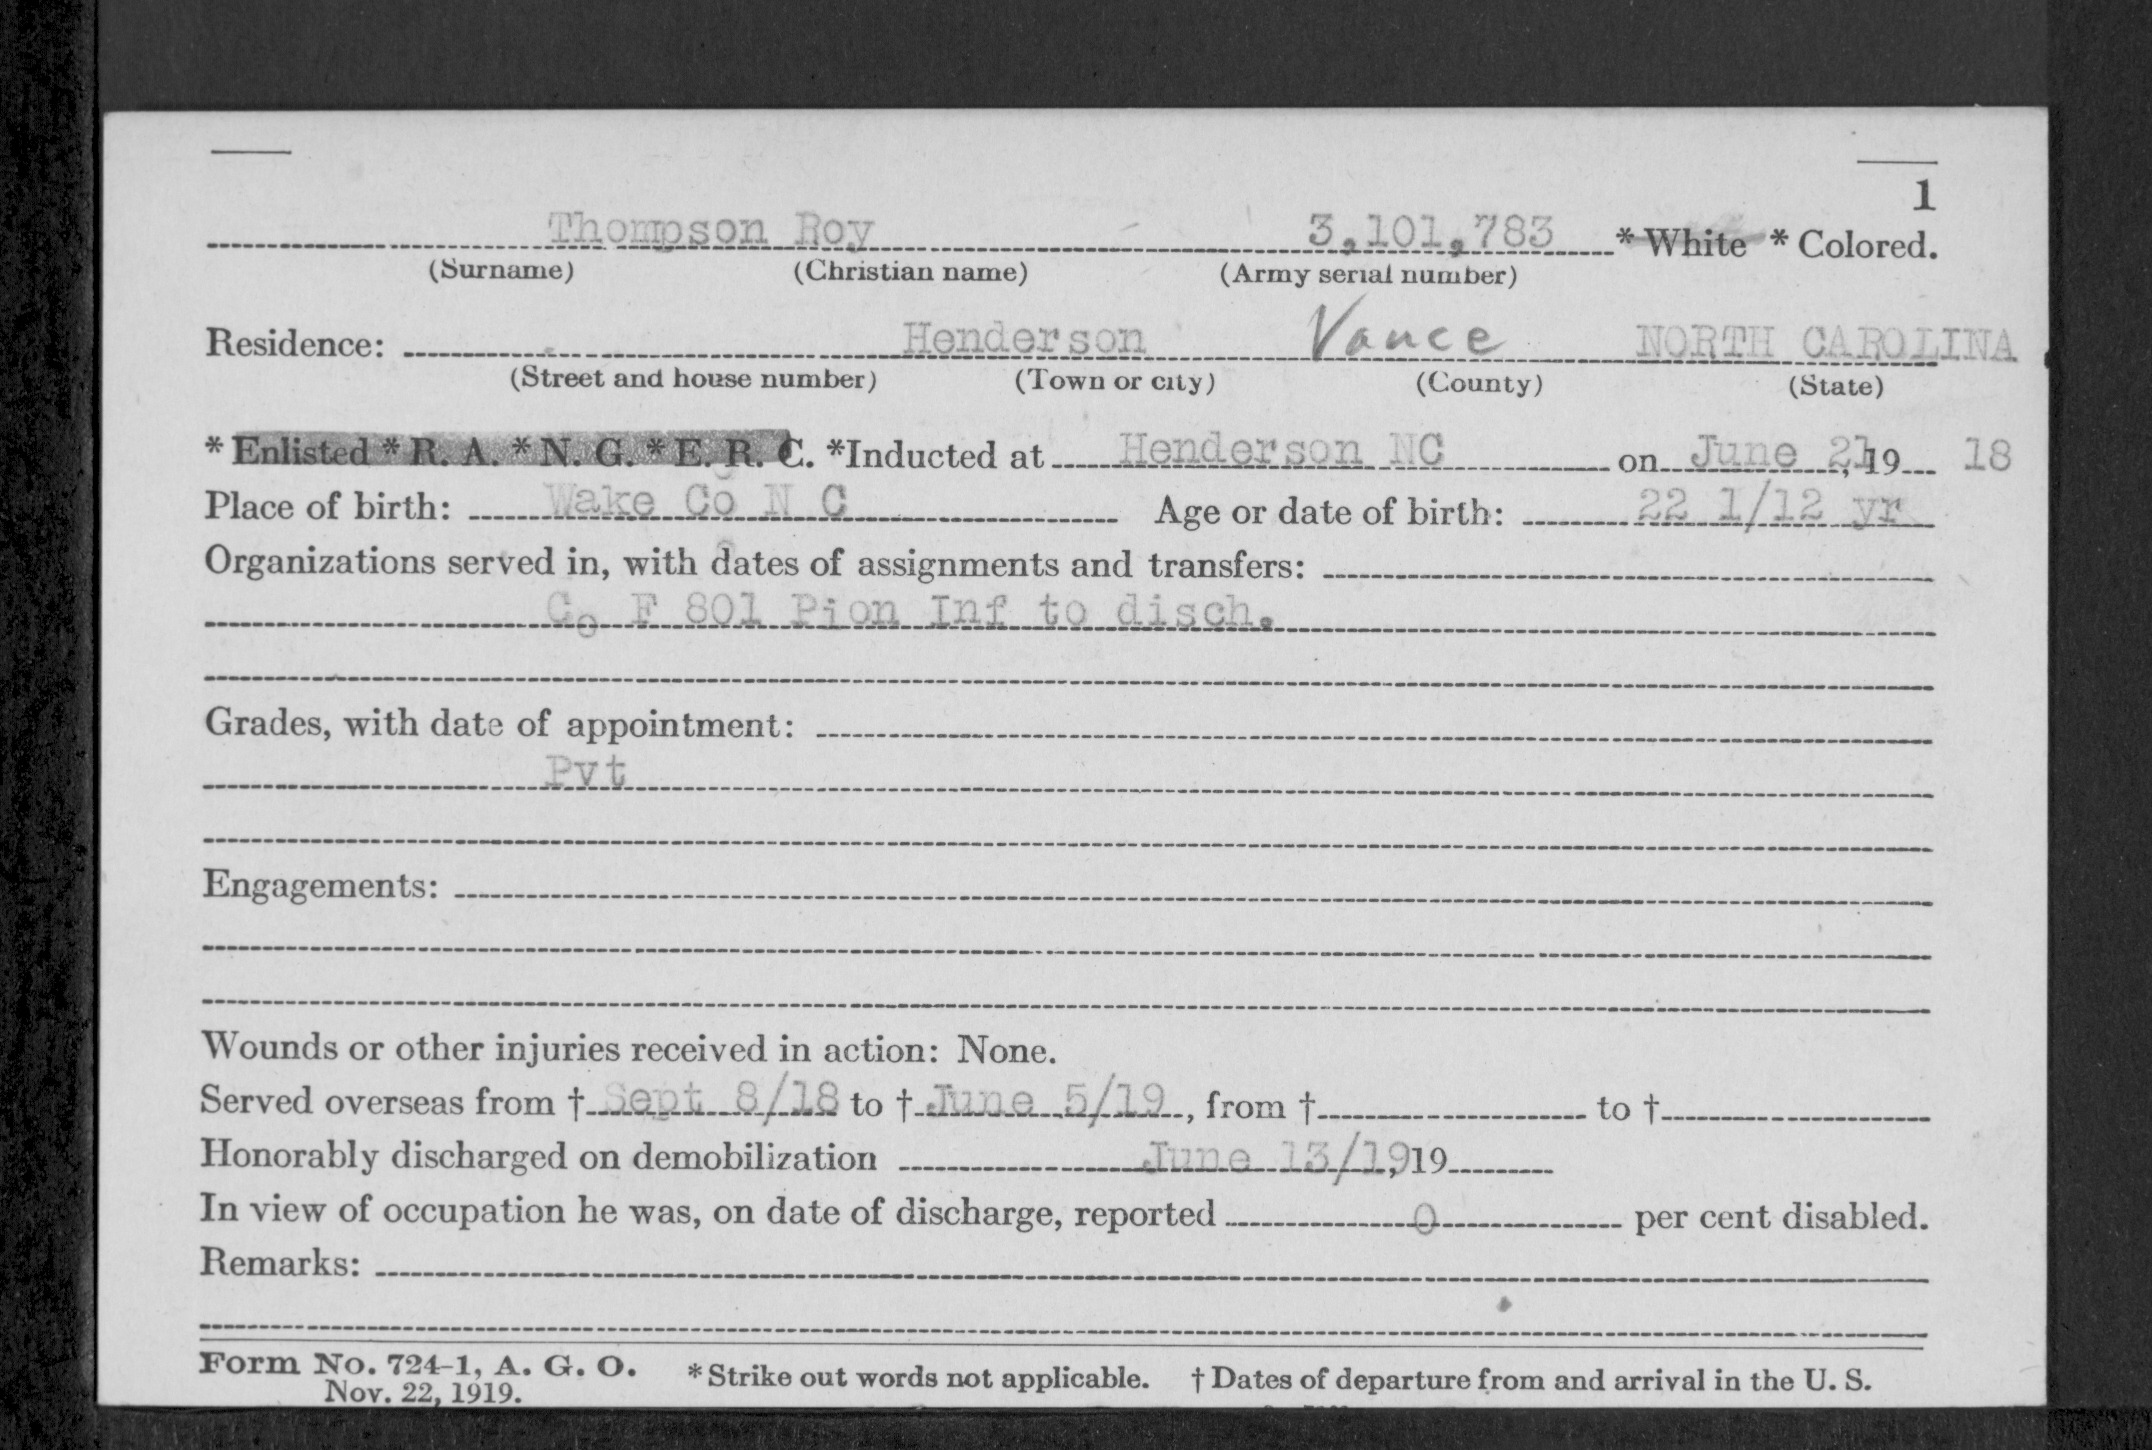 1
Thompson Roy 3,101,783 * White * Colored.
(Surname) (Christian name) (Army serial number)
Residence: Henderson Vance NORTH CAROLINA
(Street and house number) (Town or city) (County) (State)
* Enlisted * R. A. * N. G. * E. R. C. *Inducted at Henderson NC on June 21, 19 18
Place of birth: Wake Co N C Age or date of birth: 22 1/12 yr
Organizations served in, with dates of assignments and transfers:
Co F 801 Pion Inf to disch.
Grades, with date of appointment:
Pvt
Engagements:
Wounds or other injuries received in action: None.
Served overseas from † Sept 8/18 to † June 5/19, from † to †
Honorably discharged on demobilization June 13/19, 19
In view of occupation he was, on date of discharge, reported 0 per cent disabled.
Remarks:
Form No. 724-1, A. G. O. * Strike out words not applicable. † Dates of departure from and arrival in the U. S.
Nov. 22, 1919.